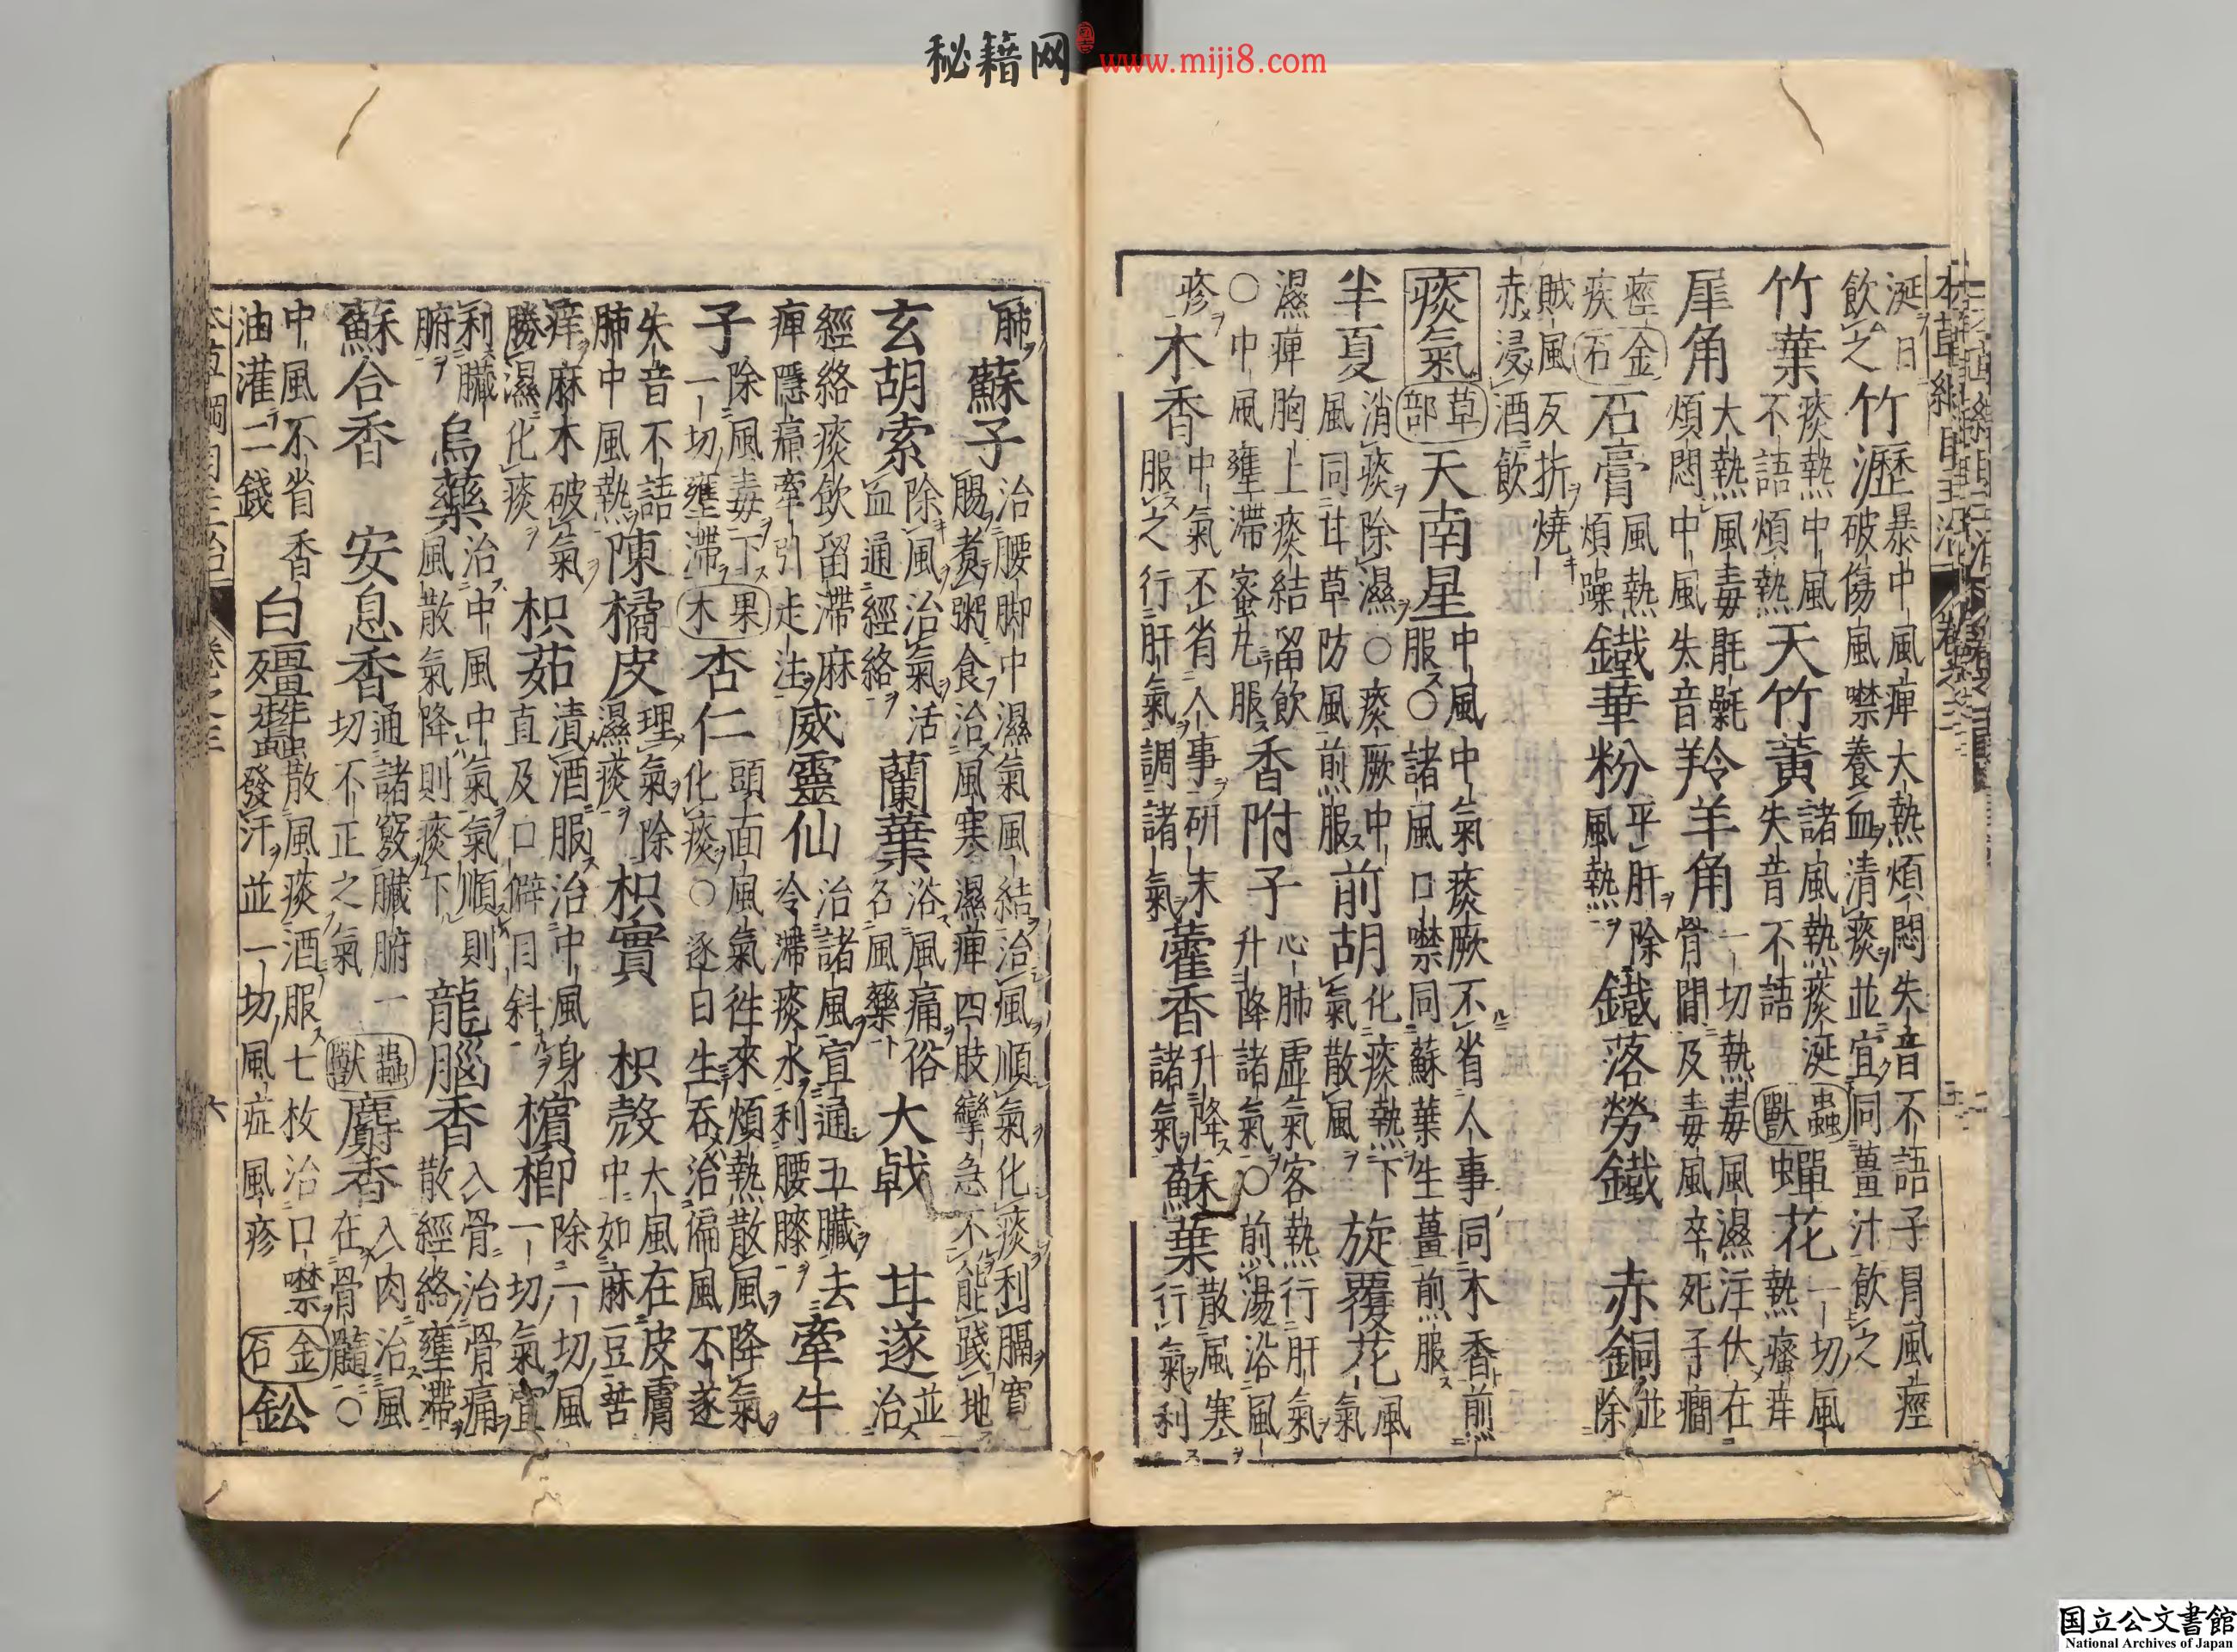 秘籍网 www.miji8.com
涎日飲之 竹瀝 暴中風痺大熱煩悶失音不語子冒風痙破傷風噤養血清痰並宜同薑汁飲之
竹葉 痰熱中風不語煩熱 天竹黃 諸風熱痰涎失音不語 蟲獸 蟬花 一切風熱瘙痒
犀角 大熱風毒毷氉煩悶中風失音 羚羊角 一切熱毒風濕注伏在骨間及毒風卒死子癇
痙疾 金石 石膏 風熱煩躁 鐵華粉 平肝除風熱 鐵落 勞鐵 赤銅 並除
賊風反折燒赤浸酒飲
痰氣 草部 天南星 中風中氣痰厥不省人事同木香煎服○諸風口噤同蘇葉生薑煎服
半夏 消痰除濕○痰厥中風同甘草防風煎服 前胡 化痰熱下氣散風 旋覆花 風氣
濕痺胸上痰結留飲○中風壅滯蜜丸服 香附子 心肺虛氣客熱行肝氣升降諸氣○煎湯浴風
疹 木香 中氣不省人事研末服之行肝氣調諸氣 藿香 升降諸氣 蘇葉 散風寒行氣利
肺 蘇子 治腰脚中濕氣風結治風順氣化痰利膈寬腸煮粥食治風寒濕痺四肢攣急不能踐地
玄胡索 除風治氣活血通經絡 蘭葉 浴風痛俗名風藥 大戟 甘遂 並治
經絡痰飲留滯麻痺隱痛牽引走注 威靈仙 治諸風宣通五臟去冷滯痰水利腰膝 牽牛
子 除風毒下一切壅滯 果木 杏仁 頭面風氣往來煩熱散風降氣化痰○逐日生吞治偏風不遂
失音不語肺中風熱 陳橘皮 理氣除濕痰 枳實 枳殼 大風在皮膚中如麻豆苦
痒麻木破氣勝濕化痰 枳茹 漬酒服治中風身直及口僻目斜 檳榔 除一切風一切氣宜
利臟腑 烏藥 治中風中氣氣順則風散氣降則痰下 龍腦香 入骨治骨痛散經絡壅滯
蘇合香 安息香 通諸竅臟腑一切不正之氣 蟲獸 麝香 入肉治風在骨髓○
中風不省香油灌二錢 白殭蠶 散風痰酒服七枚治口噤發汗並一切風症風疹 金石 鈆
六
国立公文書館
National Archives of Japan